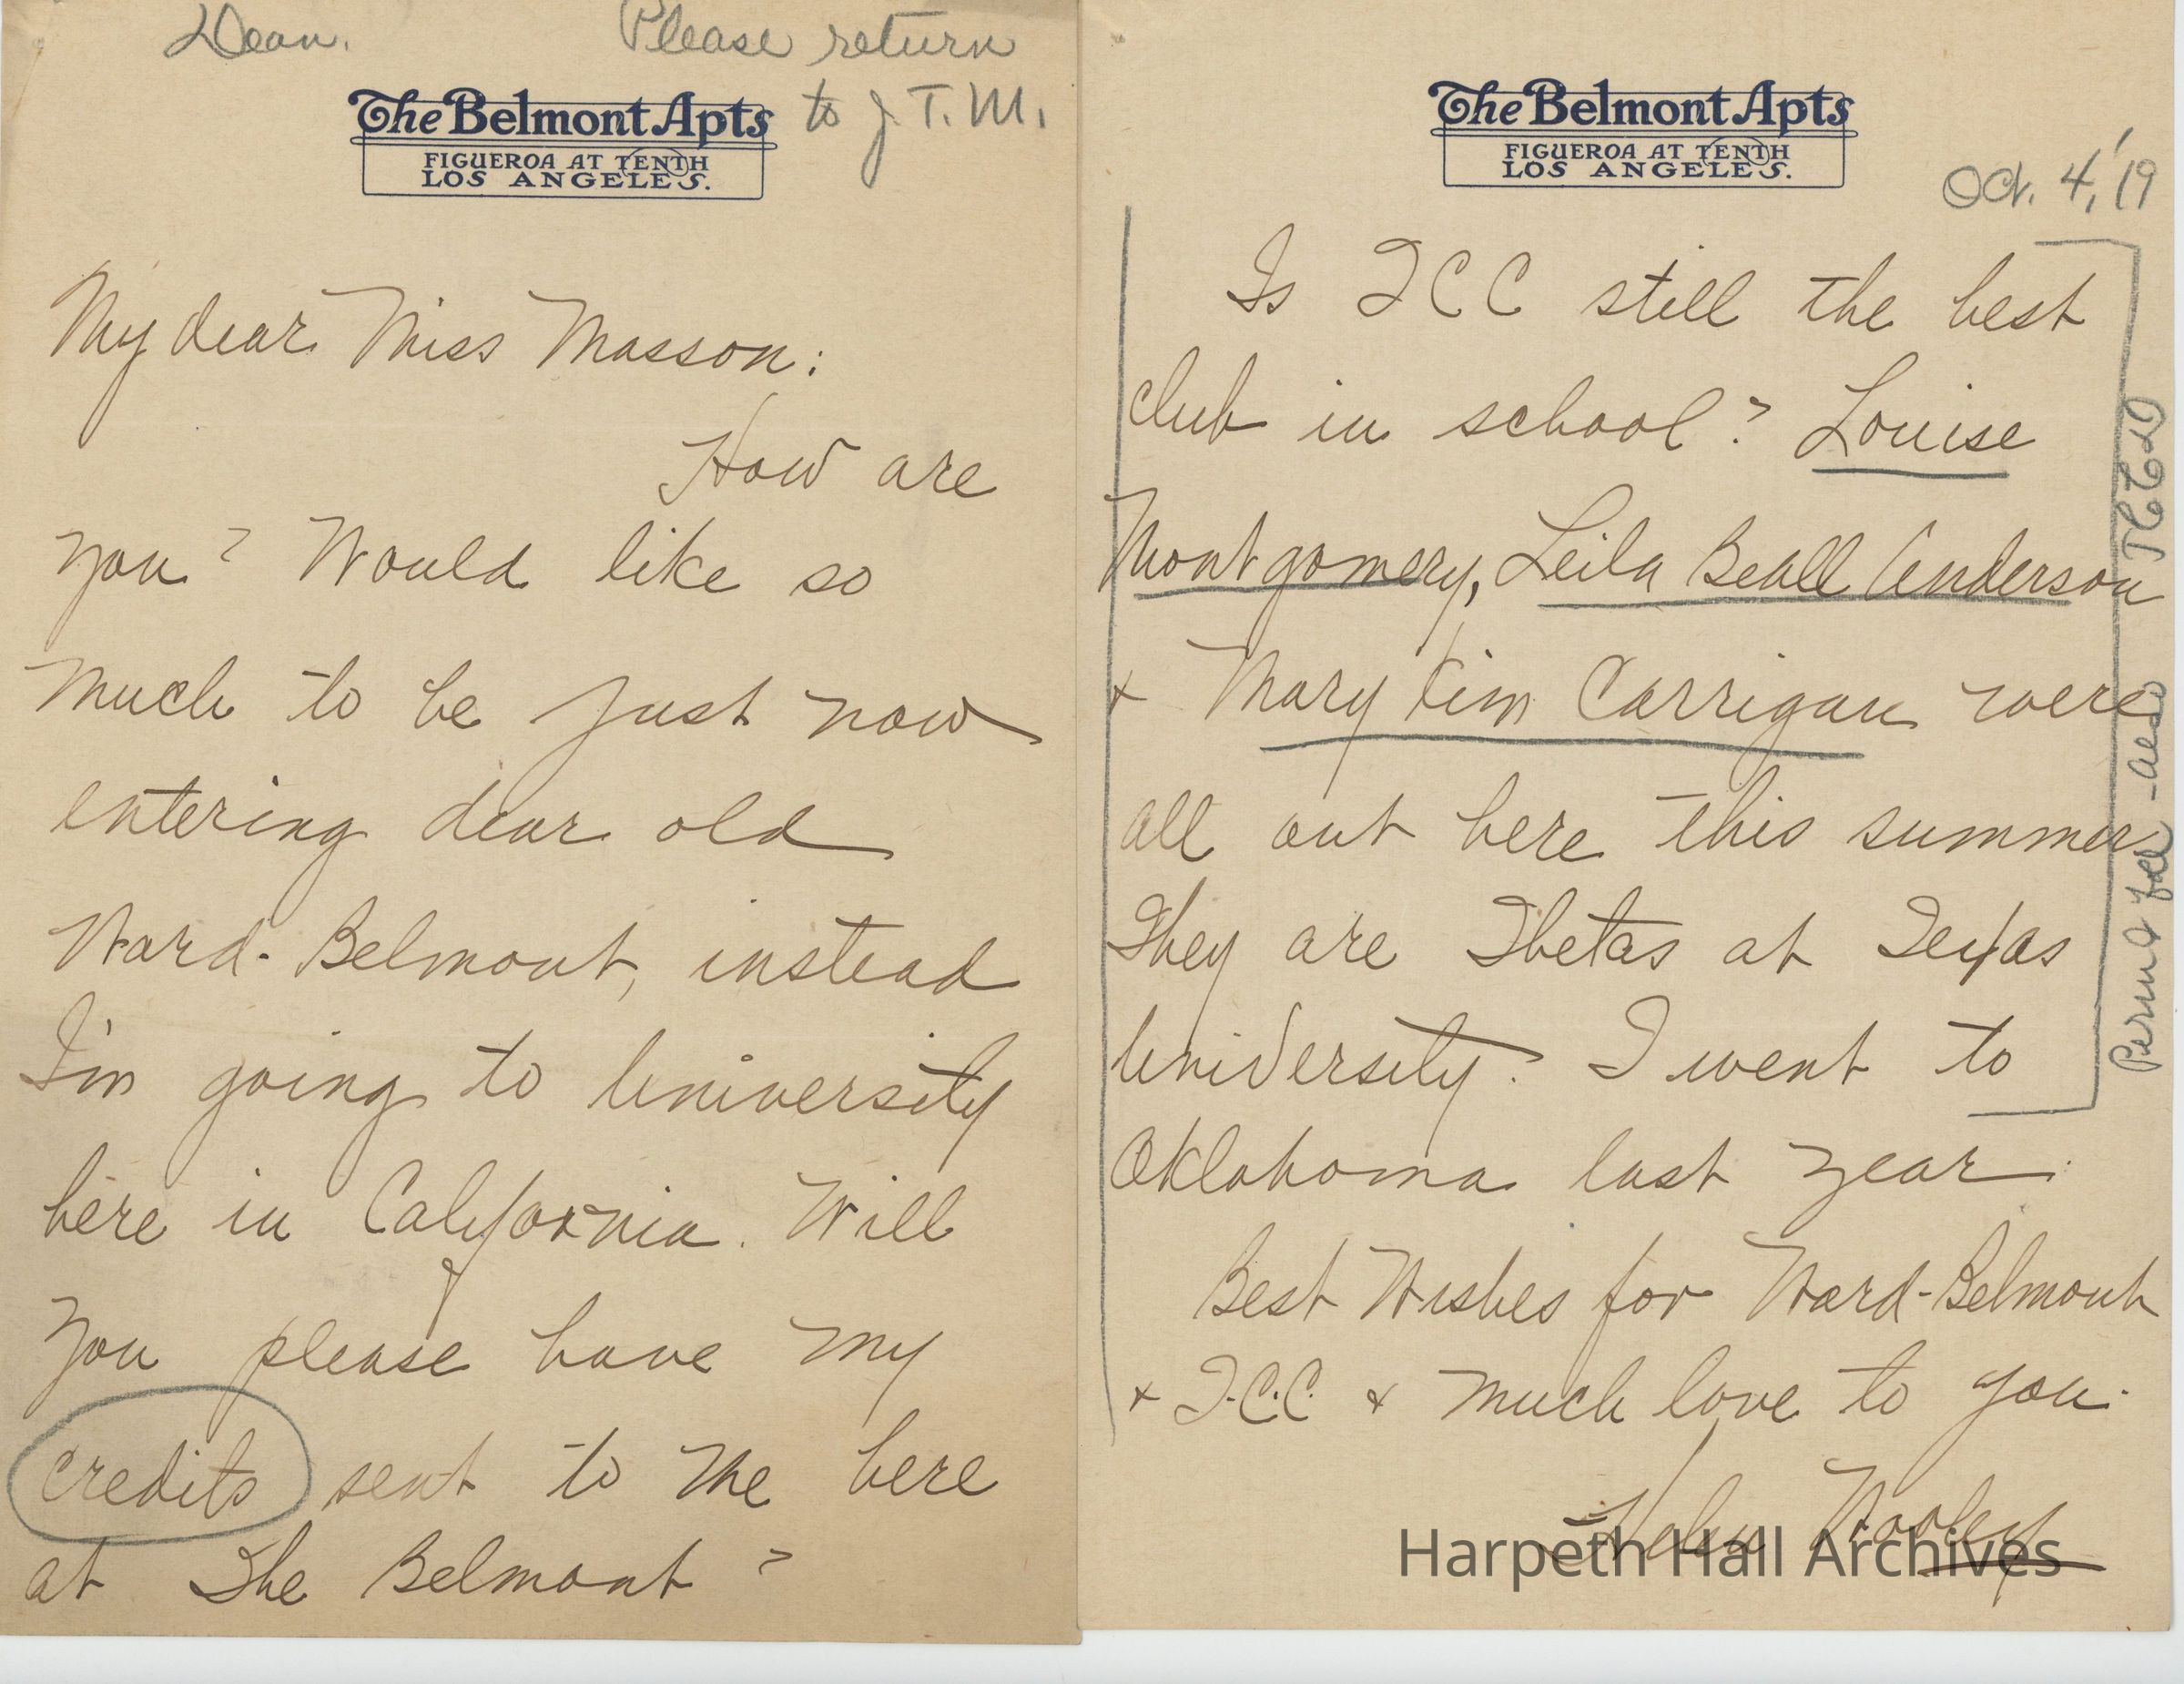 Dean.
Please return
to J. T. M.
The Belmont Apts
FIGUEROA AT TENTH
LOS ANGELES.
My dear Miss Masson:
How are
you? Would like so
much to be just now
entering dear old
Ward-Belmont, instead
I'm going to University
here in California. Will
you please have my
credits sent to me here
at The Belmont?
The Belmont Apts
FIGUEROA AT TENTH
LOS ANGELES.
Oct. 4, '19
Is T C C still the best
club in school? Louise
Montgomery, Leila Beall Anderson
+ Mary Kim Carrigan were
all out here this summer
They are Thetas at Texas
University. I went to
Oklahoma last year.
Best Wishes for Ward-Belmont
+ T.C.C. + much love to you.
Helen Wooley
Harpeth Hall Archives